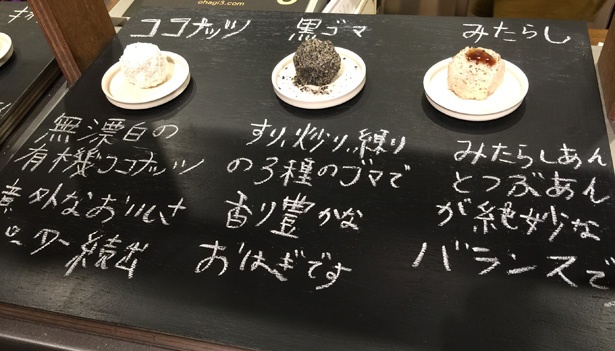 ohagi3.com
ココナッツ
無漂白の
有機ココナッツ
意外なおいしさ
ター続出
黒ゴマ
すり、炒り、練り
の3種のゴマで
香り豊かな
おはぎです
みたらし
みたらしあん
とつぶあん
が絶妙な
バランスで